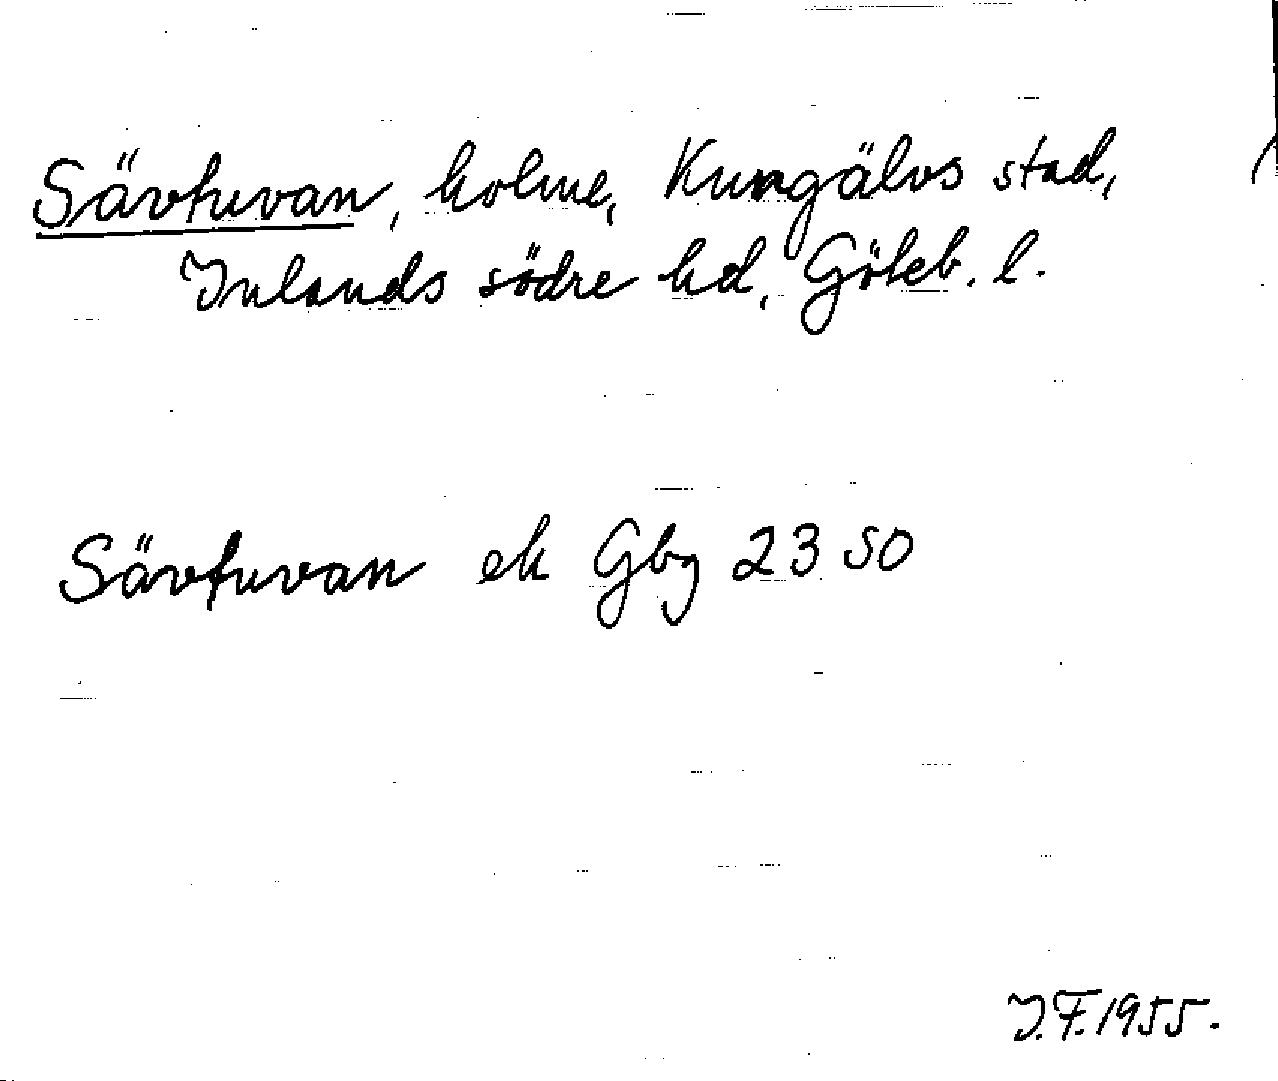 Sävtuvan, holme, Kungälvs stad,
Inlands södre hd, Göteb. l.
Sävtuvan ek Gbg 23 50
J.F. 1955.